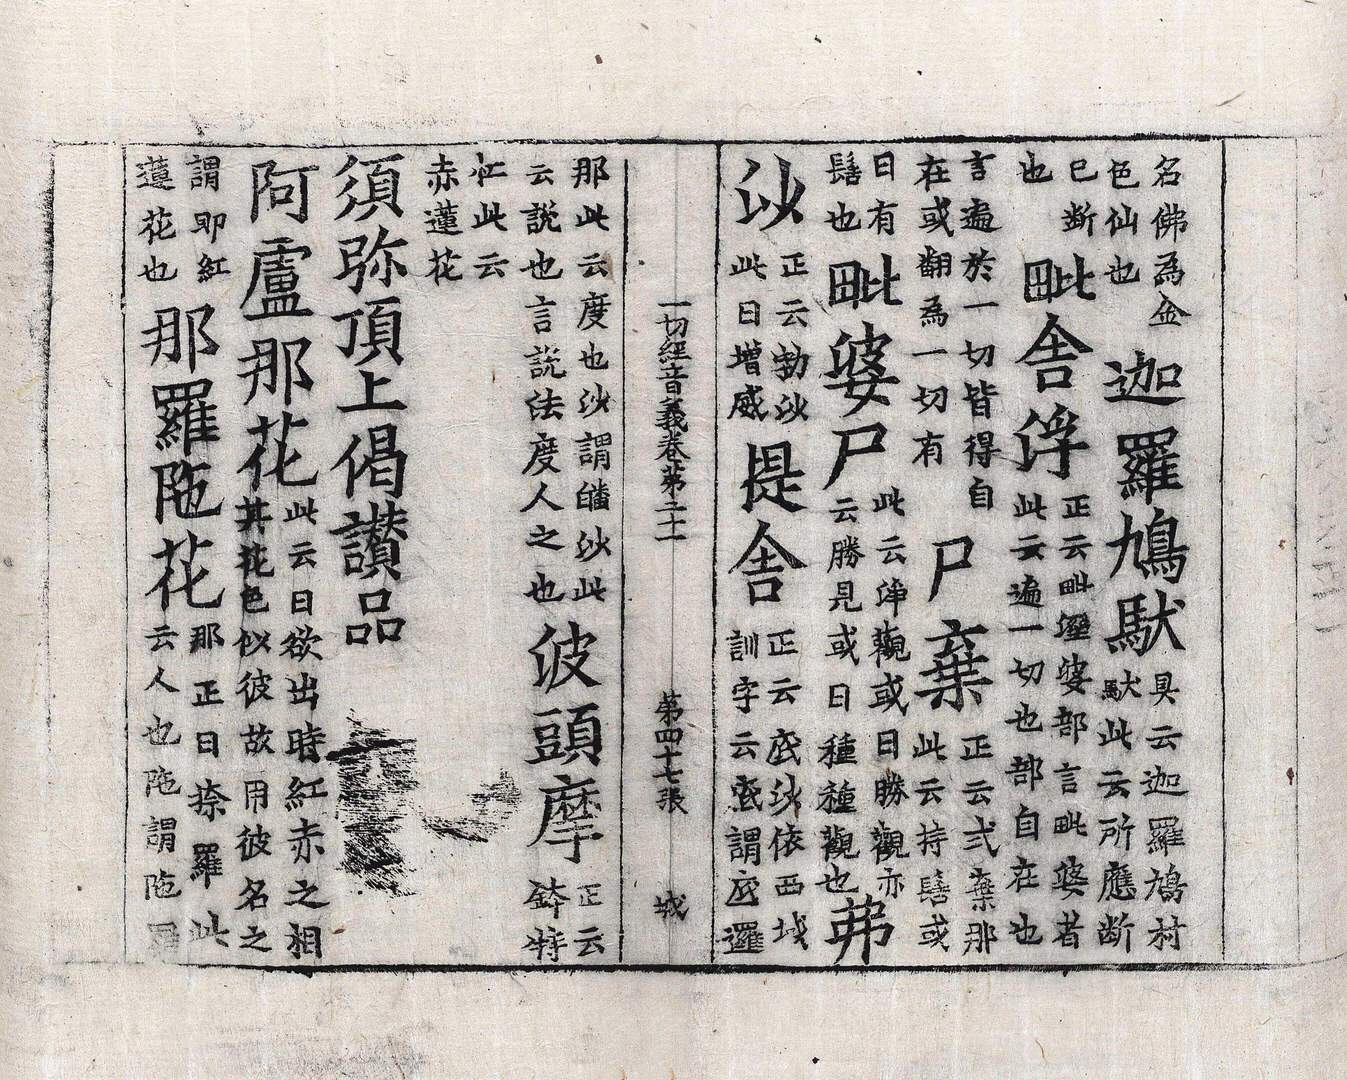 名佛為金
色仙也
迦羅鳩馱
具云迦羅鳩村
馱此云所應斷
已斷
也
毗舍浮
正云毗溼婆部言毗婆者
此云遍一切也部自在也
言遍於一切皆得自
在或翻為一切有
尸棄
正云式棄那
此云持髻或
曰有
髻也
毗婆尸
此云淨觀或曰勝觀亦
云勝見或曰種種觀也
弗
沙
正云勃沙
此曰增威
提舍
正云底沙依西域
訓字云底謂底邏
一切經音義卷第二十一 第四十七張 城
那此云度也沙謂皤沙此
云説也言説法度人之也
波頭摩
正云
鉢特
忙此云
赤蓮花
須弥頂上偈讃品
阿盧那花
此云日欲出時紅赤之相
其花色似彼故用彼名之
謂即紅
蓮花也
那羅陁花
那正曰捺羅此
云人也陁謂陁羅